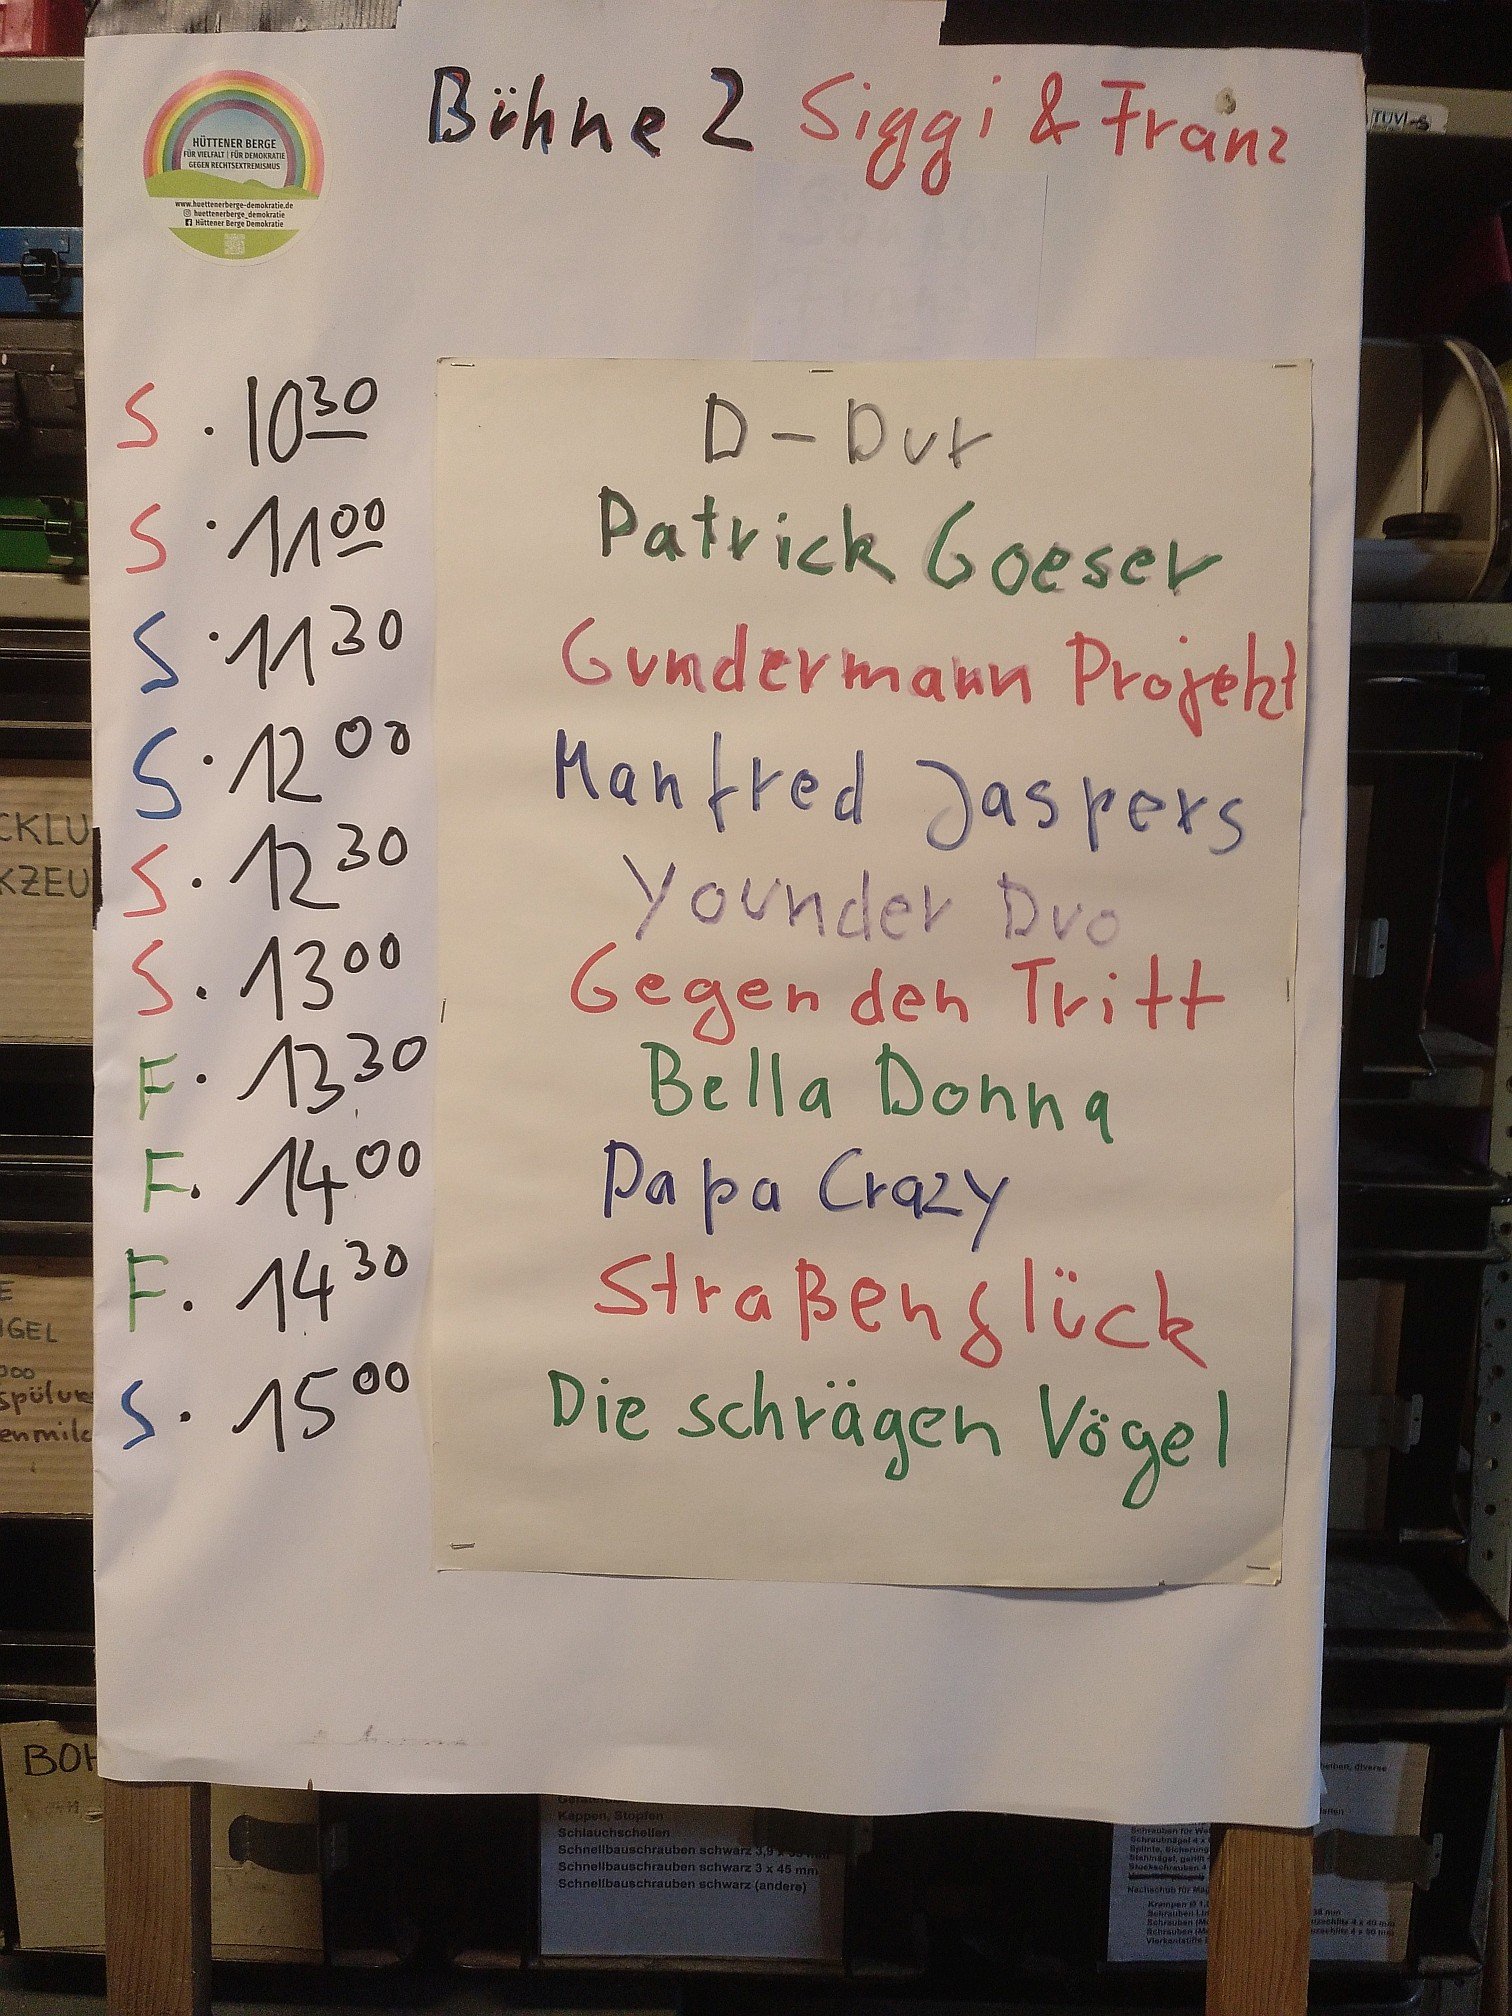 Bühne 2 Siggi & Franz
HÜTTENER BERGE
FÜR VIELFALT | FÜR DEMOKRATIE
GEGEN RECHTSEXTREMISMUS
www.huettenerberge-demokratie.de
huettenerberge_demokratie
Hüttener Berge Demokratie
S · 10 30 D-Dur
S · 11 00 Patrick Goeser
S · 11 30 Gundermann Projekt
S · 12 00 Manfred Jaspers
S · 12 30 Younder Duo
S · 13 00 Gegen den Tritt
F · 13 30 Bella Donna
F · 14 00 Papa Crazy
F · 14 30 Straßenglück
S · 15 00 Die schrägen Vögel
CKLU
KZEU
IGEL
spülu
enmilc
BOH
Kappen, Stopfen
Schlauchschellen
Schnellbauschrauben schwarz 3,9 x
Schnellbauschrauben schwarz 3 x 45 mm
Schnellbauschrauben schwarz (andere)